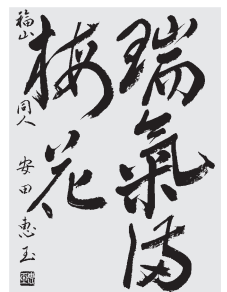 瑞氣満
梅花
福山 同人 安田恵玉